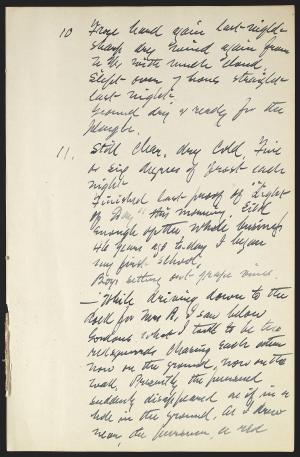 10 Froze hard again last night -
sharp dry wind again from
the north much cloud.
Slept over 7 hours straight
last night -
Ground dry & ready for the
plough.
11. Still clear, dry cold, Five
or six degrees of frost each
night -
Finished last proof of "Light
of Day," this morning. Sick
enough of the whole business
46 years ago to-day I began
my first school.
Boys setting out grape vines.
— While driving down to the
for Mrs B, I saw below
Gordons what I took to be two
red squirrels chasing each other
now on the ground, now on the
wall. Presently the pursued
suddenly disappeared as if in a
hole in the ground. As I drew
near, the pursuer, a red